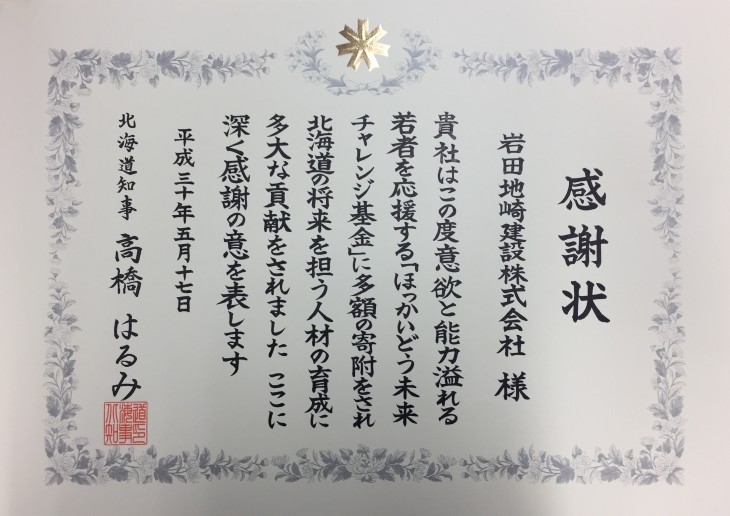 感謝状
岩田地崎建設株式会社 様
貴社はこの度意欲と能力溢れる
若者を応援する「ほっかいどう未来
チャレンジ基金」に多額の寄附をされ
北海道の将来を担う人材の育成に
多大な貢献をされました ここに
深く感謝の意を表します
平成三十年五月十七日
北海道知事 高橋 はるみ